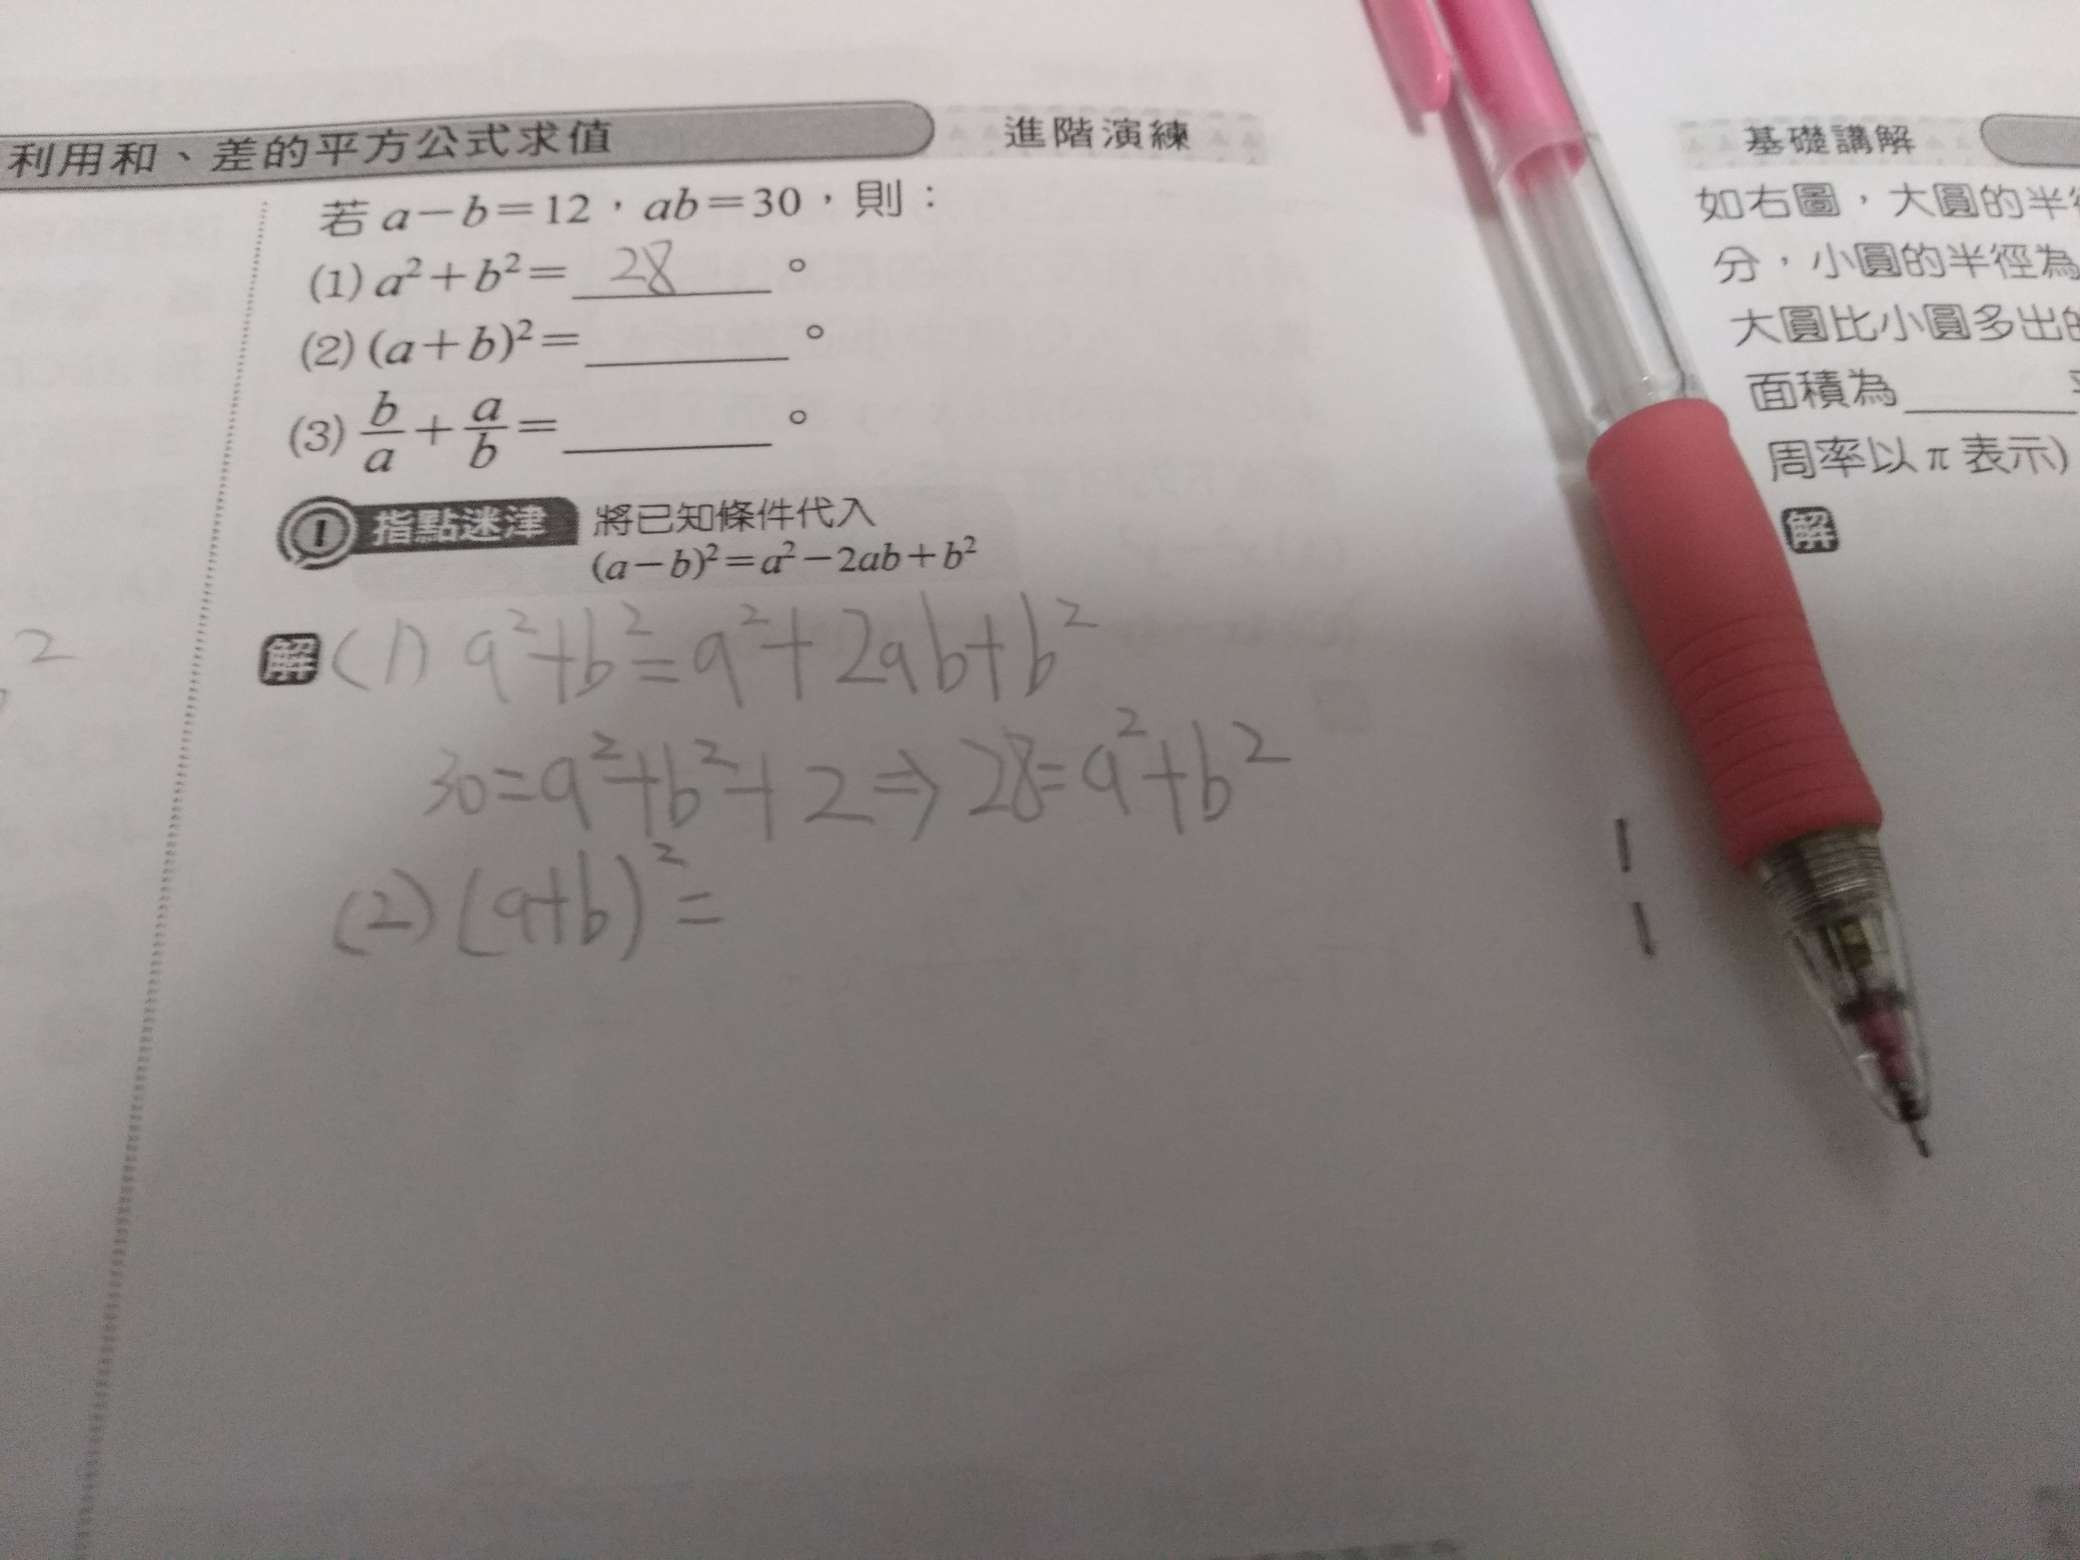 利用和、差的平方公式求值 進階演練
若 a－b＝12，ab＝30，則：
(1) a²＋b²＝ 28 。
(2) (a＋b)²＝ 。
(3) b/a＋a/b＝ 。
指點迷津 將已知條件代入
(a－b)²＝a²－2ab＋b²
解 (1) a²+b²=a²+2ab+b²
30=a²+b²+2⇒28=a²+b²
(2) (a+b)²=
2
基礎講解
如右圖，大圓的半
分，小圓的半徑為
大圓比小圓多出
面積為
周率以π表示)
解